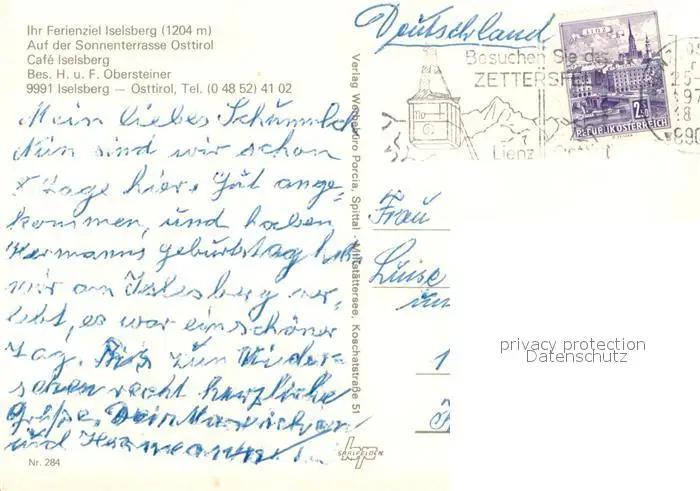 Ihr Ferienziel Iselsberg (1204 m)
Auf der Sonnenterrasse Osttirol
Café Iselsberg
Bes. H. u. F. Obersteiner
9991 Iselsberg — Osttirol, Tel. (0 48 52) 41 02
Mein liebes
Nun sind wir schon
Tage hier. Gut ange-
kommen, und haben
Hermanns Geburtstag
wir am Iselsberg ver-
lebt, es war ein schöner
Tag. Bis zum Wieder-
sehen recht herzliche
Grüße. Dein
und Hermann
Nr. 284
Verlag Werbebüro Porcia, Spittal - Millstättersee, Koschatstraße 51
SAALFELDEN
Deutschland
Besuchen Sie das
ZETTERSFE
Lienz
LINZ
2.50
REPUBLIK ÖSTERREICH
Frau
Luise
privacy protection
Datenschutz